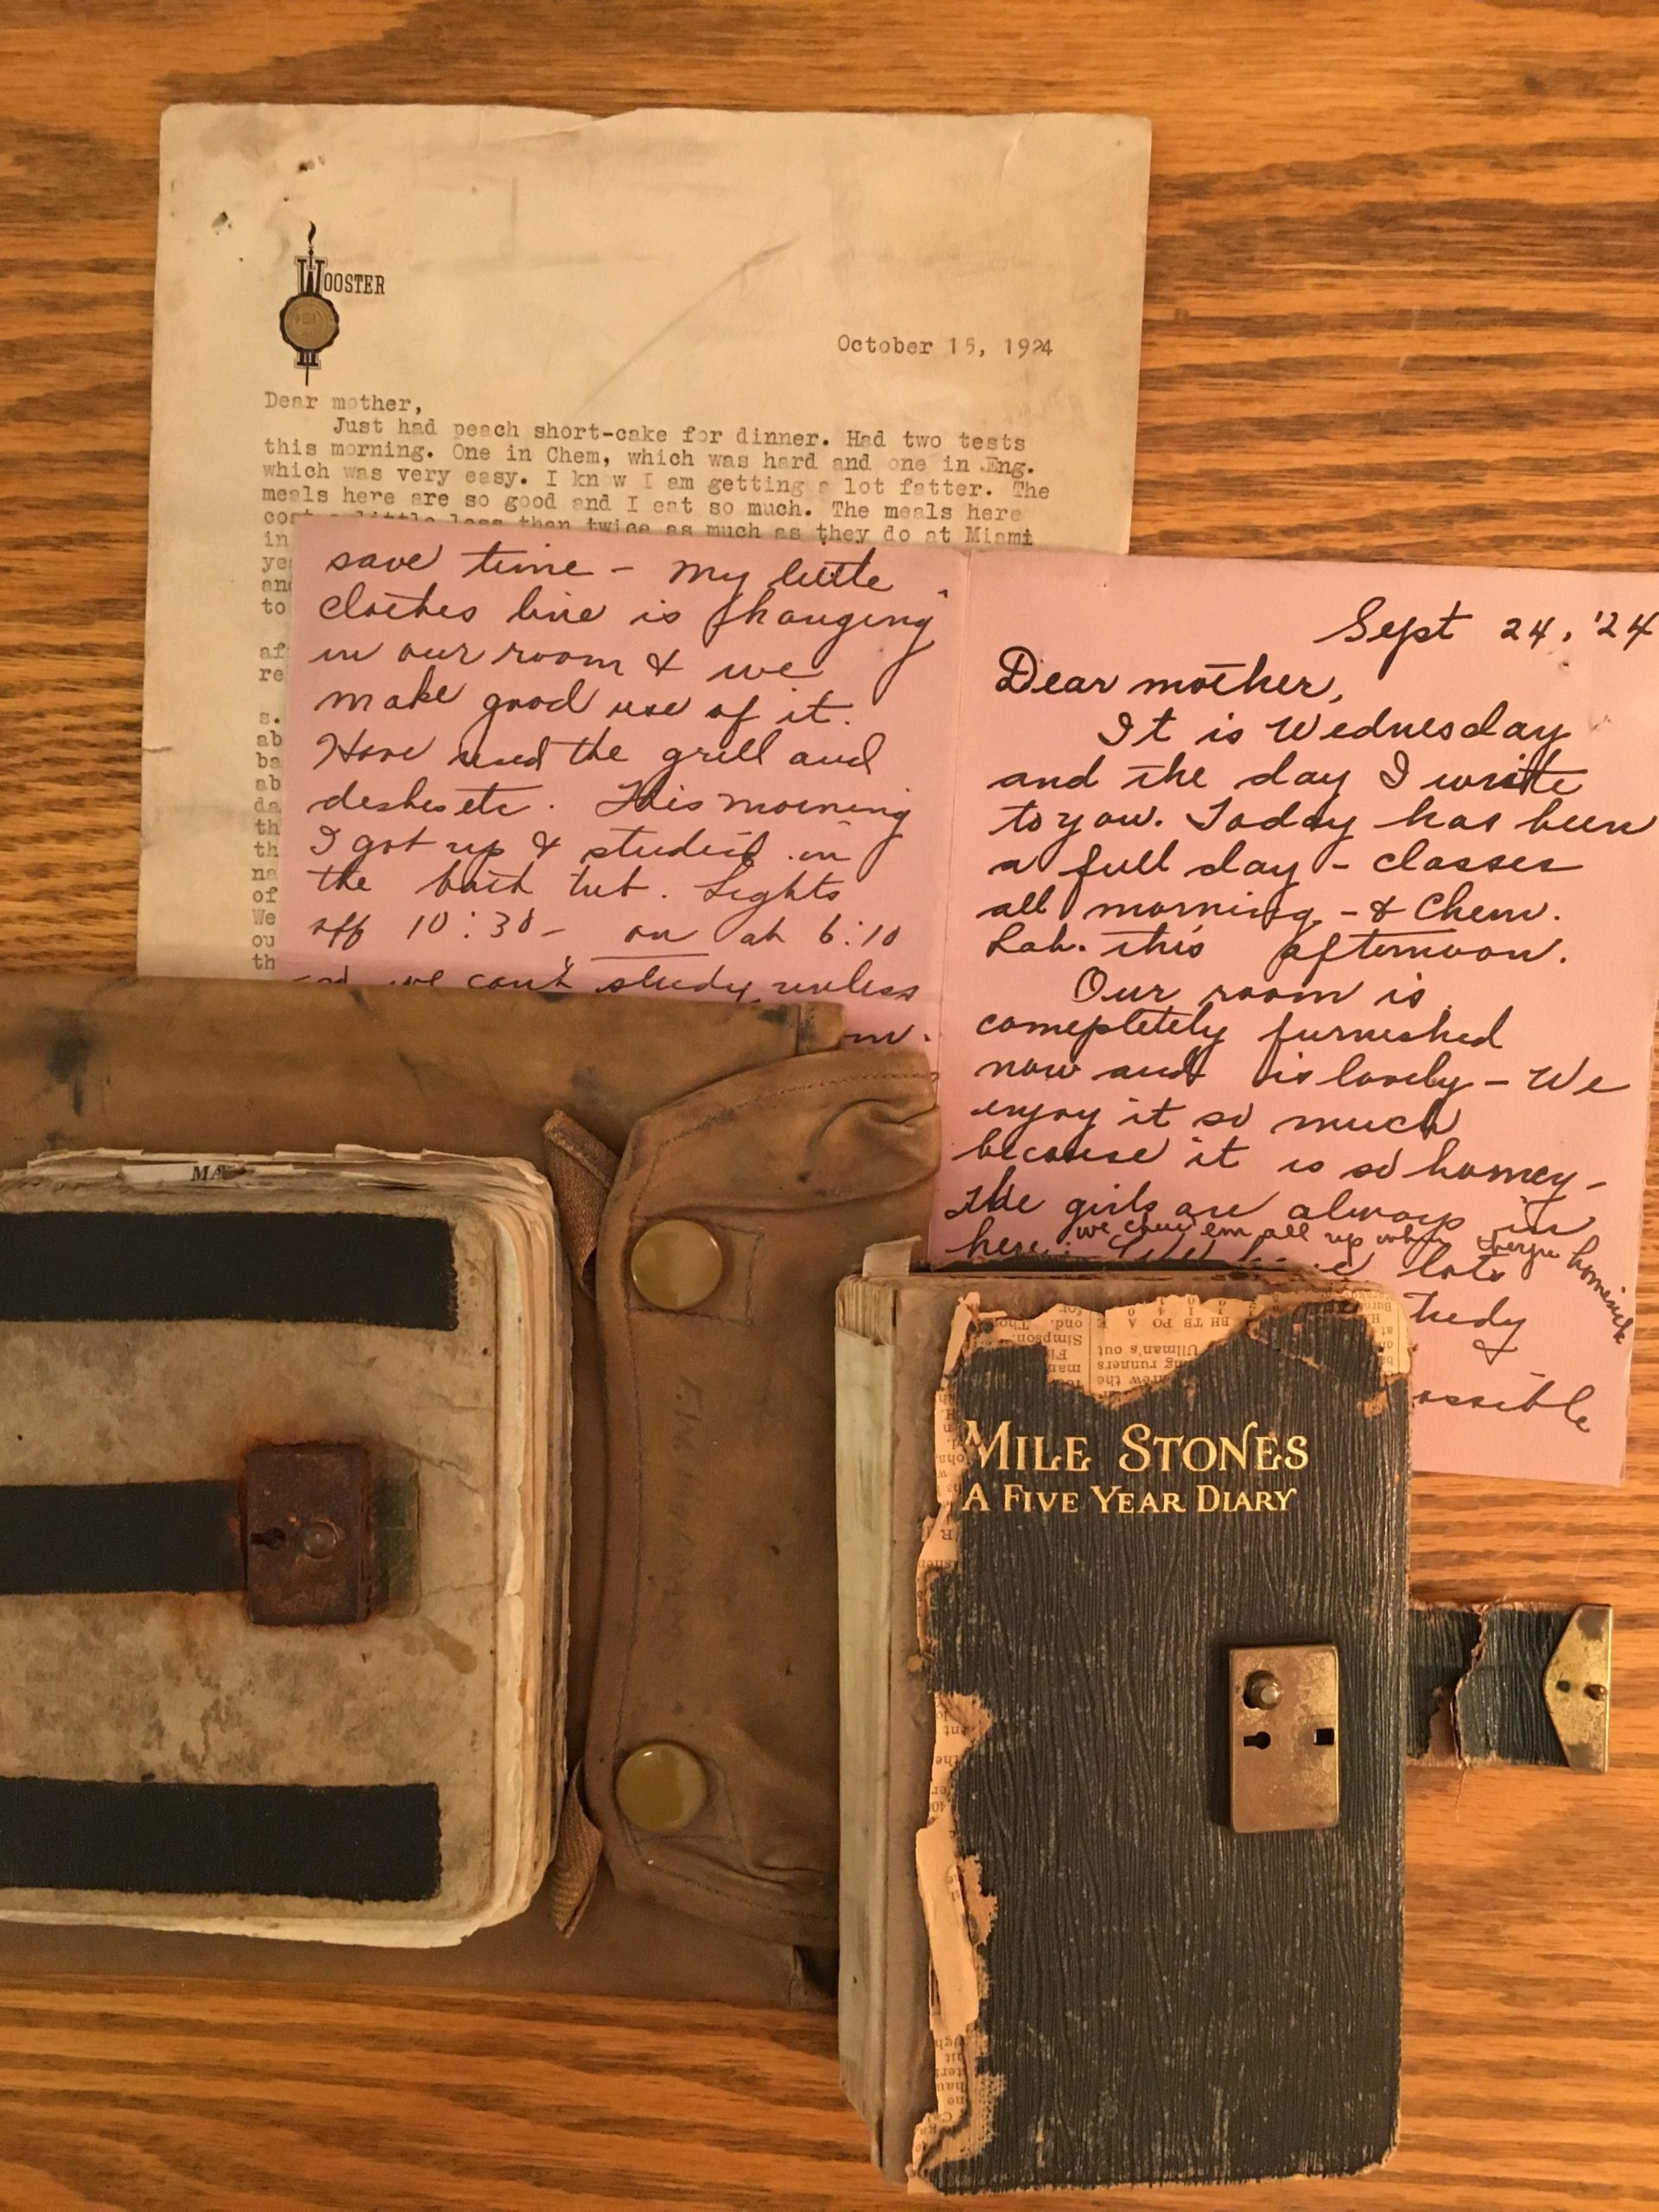 WOOSTER
October 15, 1924
Dear mother,
Just had peach short-cake for dinner. Had two tests
this morning. One in Chem, which was hard and one in Eng.
which was very easy. I know I am getting a lot fatter. The
meals here are so good and I eat so much. The meals here
cost a little less than twice as much as they do at Miami
in
ye
and
to
af
re
s.
ab
ba
ab
da
th
th
na
of
We
ou
th
save time - my little
clothes line is hanging
in our room & we
make good use of it.
Have used the grill and
dishes etc. This morning
I got up & studied in
the bath tub. Lights
off 10:30 - on at 6:10
we can't study unless
Sept 24, '24
Dear mother,
It is Wednesday
and the day I write
to you. Today has been
a full day - classes
all morning - & Chem.
Lab. this afternoon.
Our room is
comepletely furnished
now and is lovely - We
enjoy it so much
because it is so homey -
the girls are always in
we cheer 'em all up when they're homesick
here. lots
tudy
&
ossible
MA
Simpson.
man
Ullman's out
ng runners
rew the
MILE STONES
A FIVE YEAR DIARY